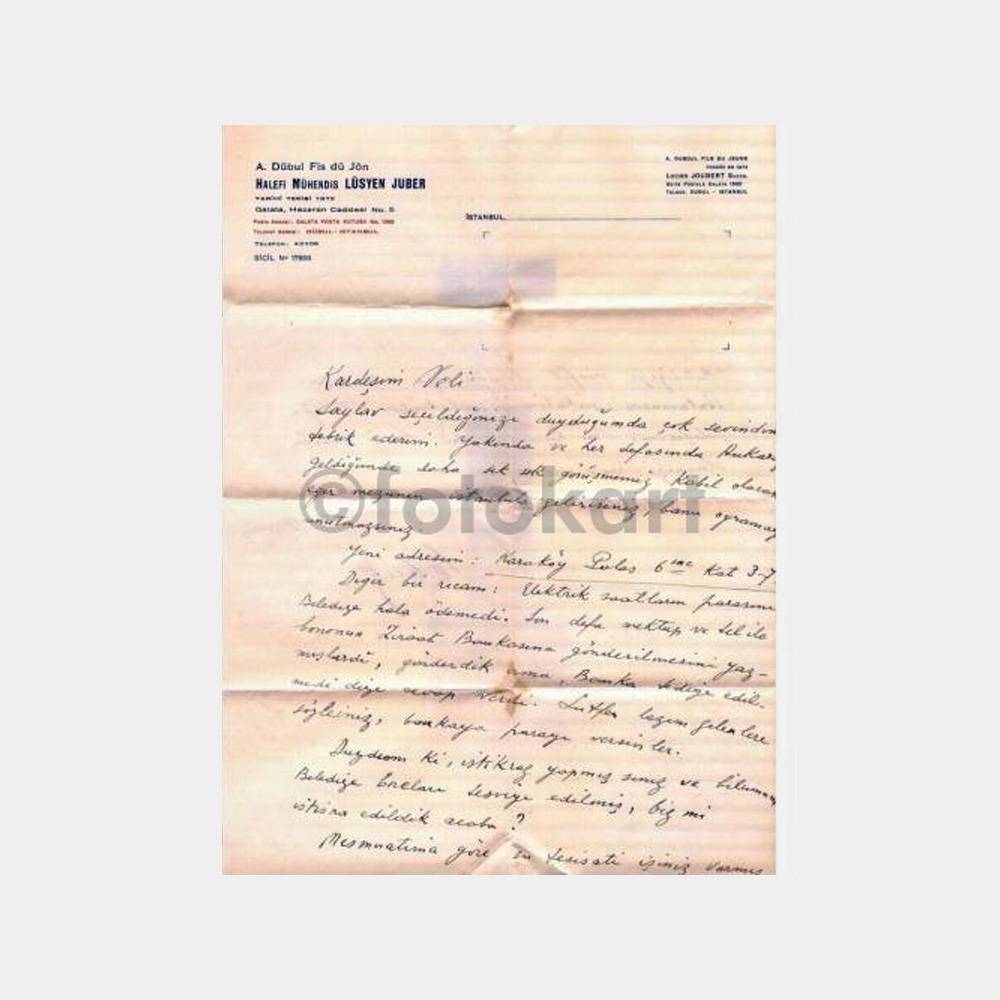 A. Dübul Fis dü Jön
HALEFİ MÜHENDİS LÜSYEN JUBER
TARİHİ TESİSİ 1873
Galata, Hezaren Caddesi No. 5
POSTA ADRESİ: GALATA POSTA KUTUSU No. 1082
TELGRAF ADRESİ: DÜBUL - İSTANBUL
TELEFON:
SİCİL Nº
A. DUBOUL FILS DU JEUNE
LUCIEN JOUBERT SUCCR.
BOITE POSTALE GALATA
TELEGR. DUBUL - ISTANBUL
İSTANBUL,
Kardeşim Veli
Saylav seçildiğinizi duyduğumda çok sevindim
tebrik ederim. Yakında ve her defasında Ankara
geldiğimde daha sık sık görüşmemiz kabil olacak
eğer mezunen istanbula gelirseniz, bana ogramay
unutmazsınız
Yeni adresim: Karaköy Palas 6ıncı Kat 3-7
Diğer bir ricam: Elektrik saatların parasını
Belediye hala ödemedi. Son defa mektup ve tel ile
bononun Ziraat Bankasına gönderilmesini yaz-
mışlardı, gönderdik ama, Banka tediye edil-
medi diye cevap verdi. Lutfen lazım gelenlere
söyleiniz, bankaya parayı versinler.
Duydum ki, istikraz yapmış sınız ve bilumum
Belediye borcları tesviye edilmiş, biz mi
istisna edildik acaba?
Mesmuatıma göre su tesisatı işiniz varmış
©fotokart